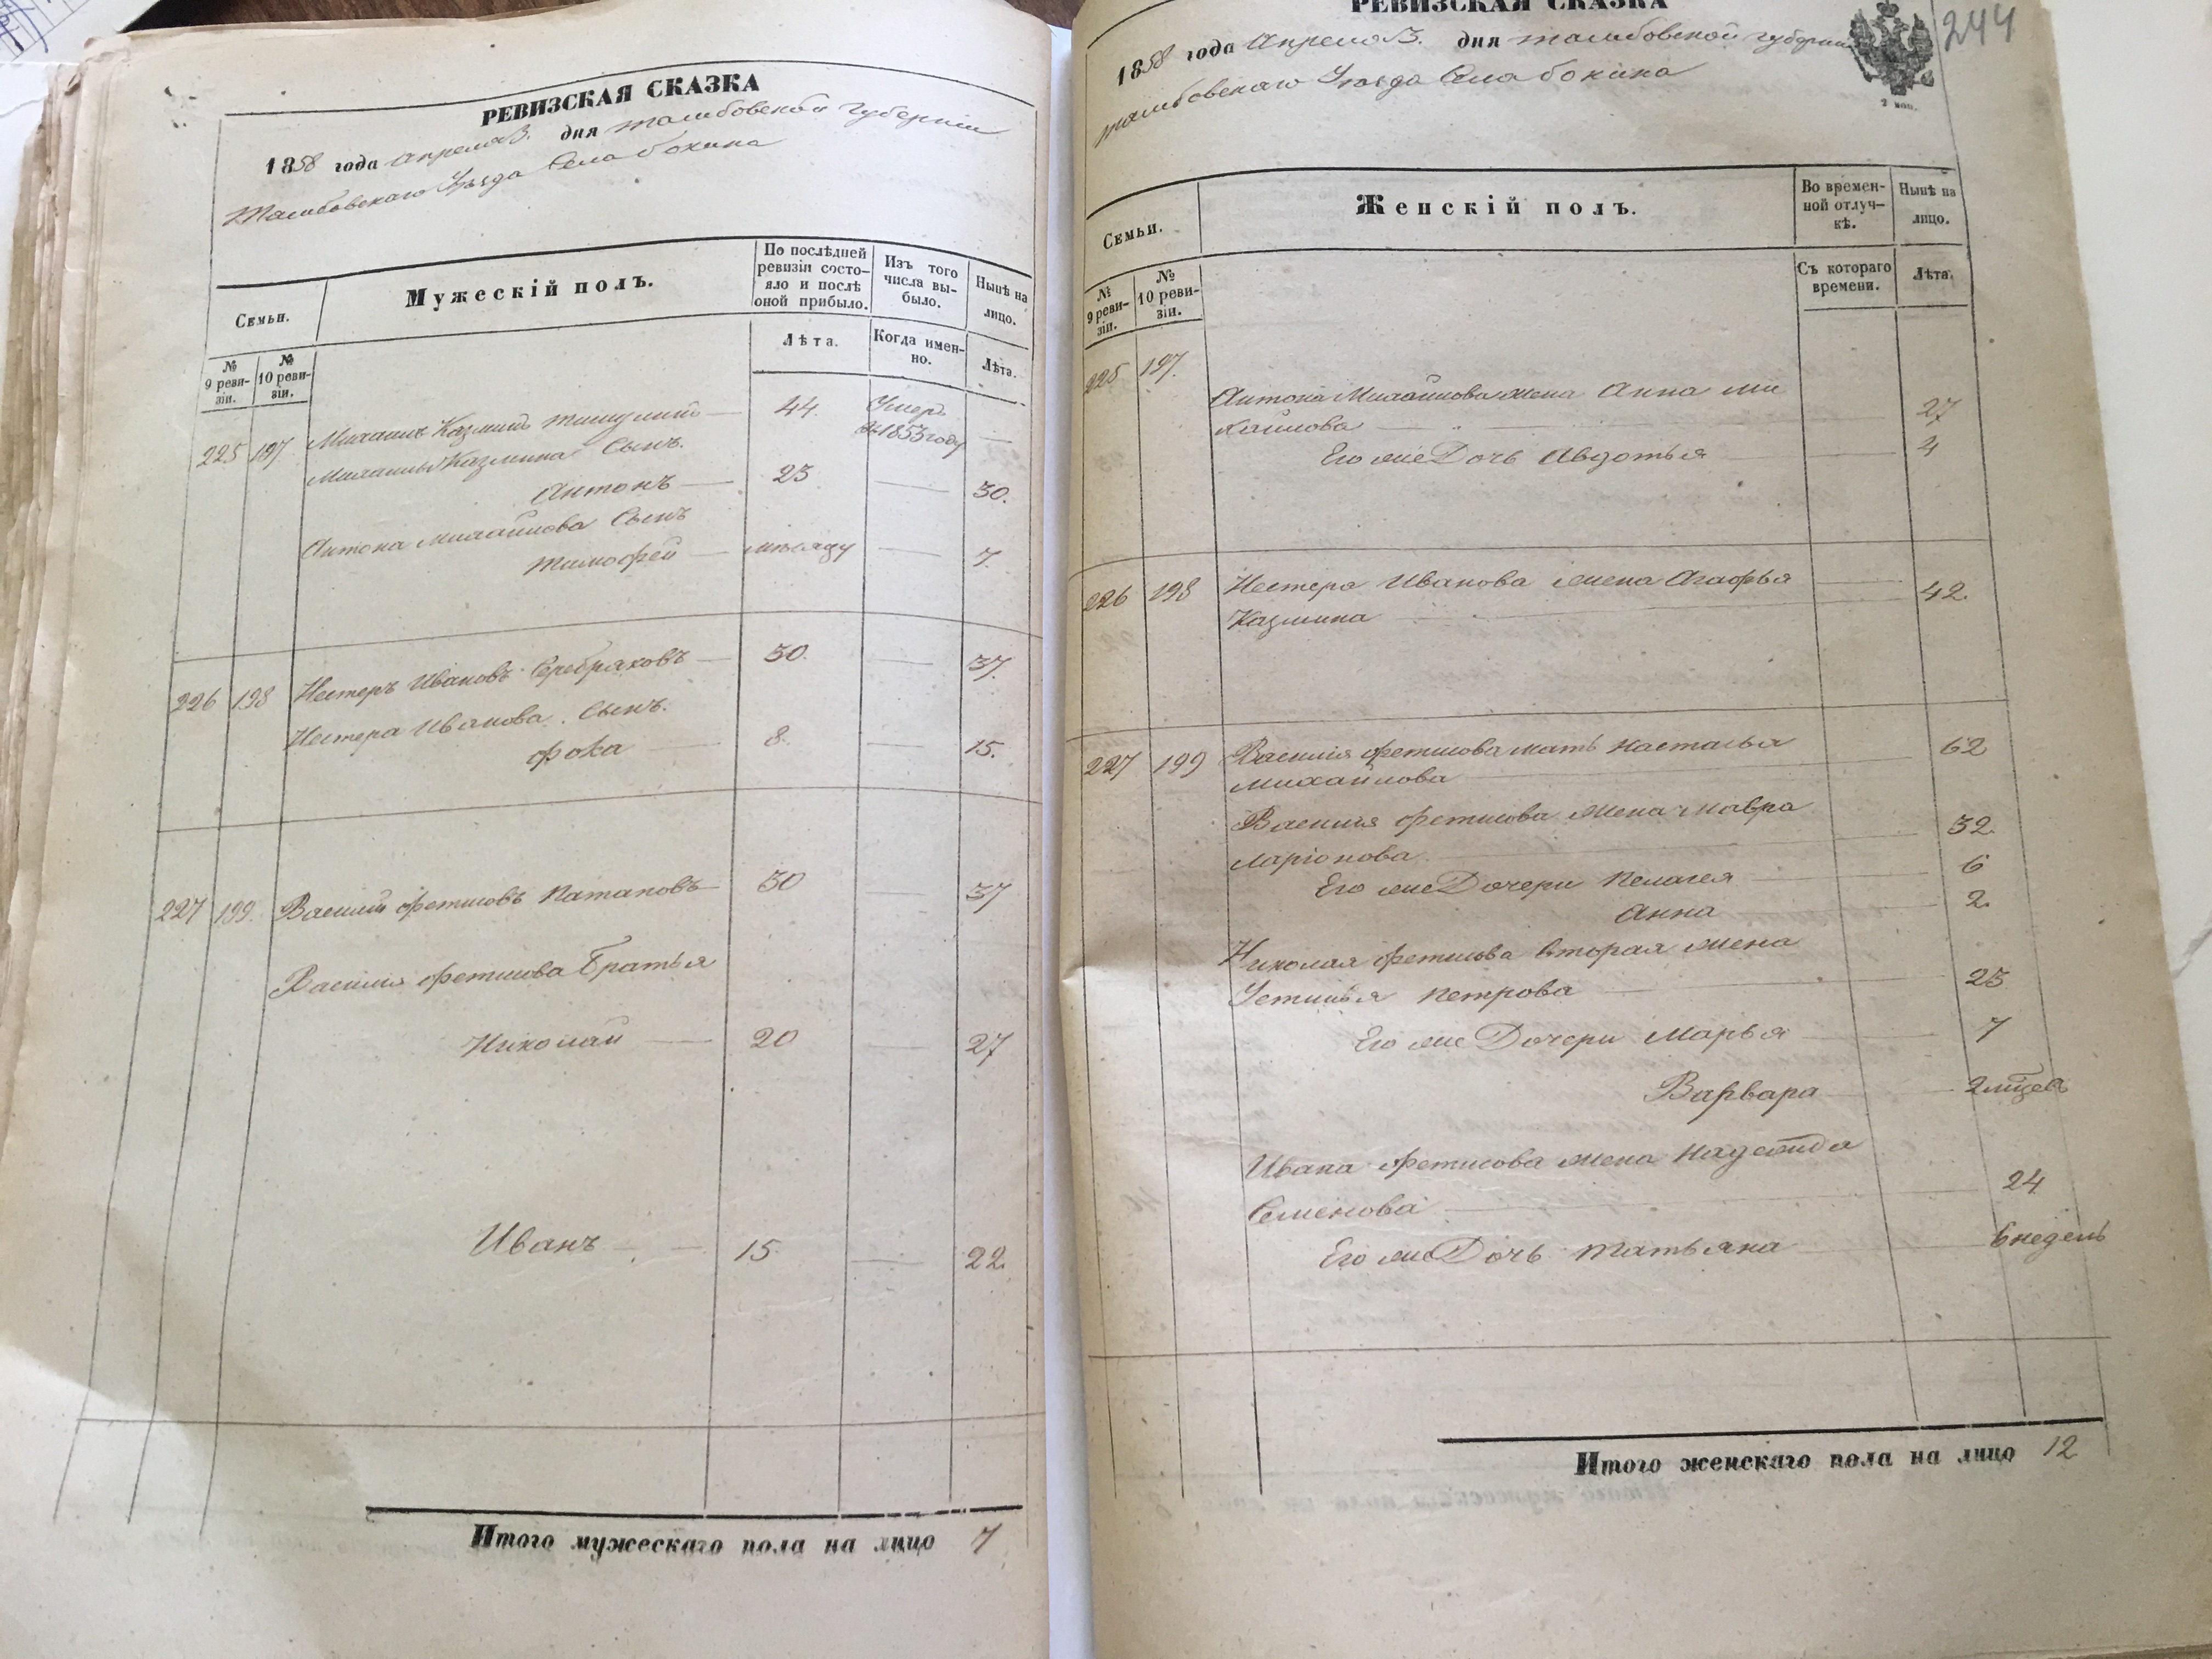 РЕВИЗСКАЯ СКАЗКА
1858 года Апреля 3. дня Тамбовской губернии
Тамбовскаго Уезда Села бокина
Семьи.
Мужескій полъ.
По послѣдней ревизіи состо-
яло и послѣ
оной прибыло.
Изъ того
числа вы-
было.
Нынѣ на
лицо.
№
9 реви-
зіи.
№
10 реви-
зіи.
Лѣта.
Когда имен-
но.
Лѣта.
225 197 Михаилъ Казминъ 44. Умеръ
въ 1853 году
Михаилы Казмина Сынъ.
Антонъ 23 30.
Антона михайлова Сынъ
тимофей месяцу 7.
226 198 Нестеръ Ивановъ Серебряковъ 30. 37.
Нестера Иванова. Сынъ.
фока 8. 15.
227 199. Василий фетисовъ Патаповъ 30 37
Василия фетисова братья
Николай 20 27
Иванъ 15. 22.
Итого мужескаго пола на лицо 7
РЕВИЗСКАЯ СКАЗКА
244
1858 года Апреля 3. дня тамбовской губернии
2 коп.
тамбовскаго Уезда Села бокина
Семьи.
Женскій полъ.
Во времен-
ной отлуч-
кѣ.
Нынѣ на
лицо.
№
9 реви-
зіи.
№
10 реви-
зіи.
Съ котораго
времени.
Лѣта.
225 197.
Антона Михайлова жена Анна ми
хайлова 27
Его же Дочь Авдотья 4
226 198 Нестера Иванова жена Агафья
Казмина 42.
227 199 Василия фетисова мать Настасья
михайлова 62
Василия фетисова жена мавра
ларіонова 32.
Его же Дочери пелагея 6
Анна 2.
Николая фетисова вторая жена
Устинья петрова 23
Его же Дочери Марья 7
Варвара 2 мцев
Ивана фетисова жена надежда
Семенова 24
Его же Дочь татьяна 6 недель
Итого женскаго пола на лицо 12